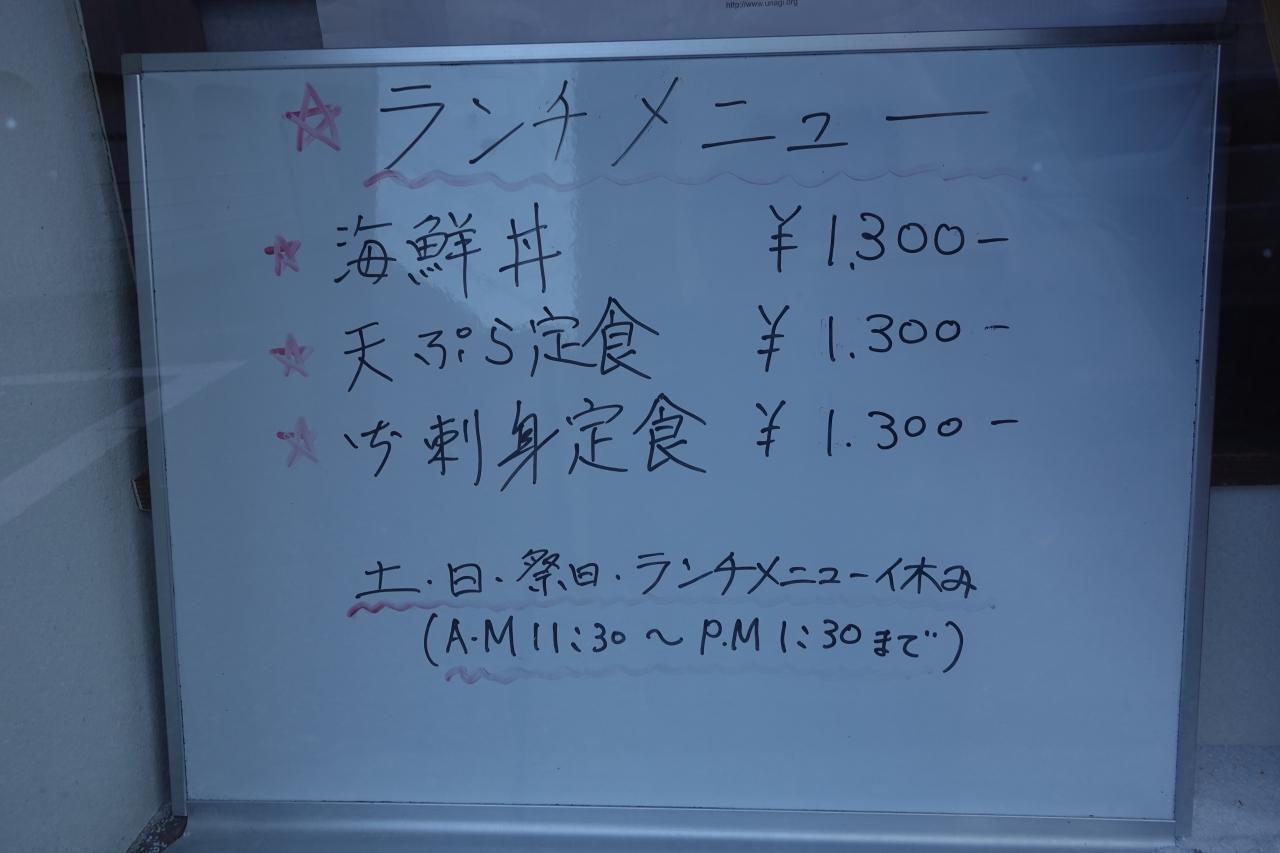 http://www.unagi.org
☆ ランチメニュー
★ 海鮮丼 ¥1,300−
★ 天ぷら定食 ¥1.300−
★ お刺身定食 ¥1.300−
土・日・祭日・ランチメニュー休み
(A.M 11:30 〜 P.M 1:30 まで)